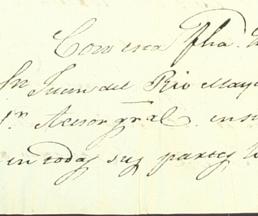 Con esta fha.
Sn. Juan del Rio May
Sr. Asesor gral.
en todas sus partes